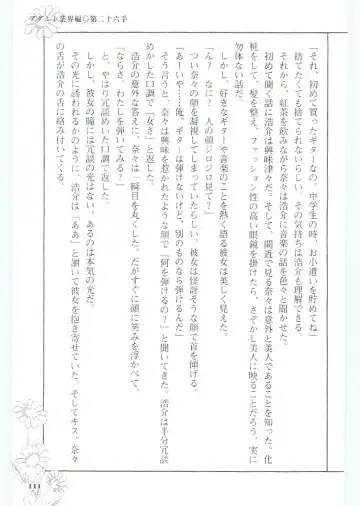 アダルト業界編◎第二十六手
「それ、初めて買ったギターなの。中学生の時、お小遣いを貯めてね」
捨てたくても捨てられないらしい。その気持ちは浩介も理解できる。
それから、紅茶を飲みながら奈々は浩介に音楽の話を色々と聞かせた。
初めて聴く話に浩介は興味津々だ。そして、間近で見る奈々は意外と美人であることを知った。化
粧をして、髪を整え、ファッション性の高い眼鏡を掛けたら、さぞかし美人に映ることだろう。実に
勿体ない話だ。
しかし、好きなギターや音楽のことを熱く語る彼女は美しく見えた。
「ん？　なに？　人の顔ジロジロ見て？」
つい奈々の顔を凝視してしまっていたらしい。彼女は怪訝そうな顔で首を傾げる。
「あーいや……俺、ギターは弾けないけど、別のものなら弾けるんだ」
そう言うと、奈々は興味を惹かれたような顔で「何を弾けるの？」と聞いてきた。浩介は半分冗談
めかした口調で「女さ」と返した。
浩介の意外な答えに、奈々は一瞬目を丸くした。だがすぐに顔に笑みを浮かべて、
「ならさ、わたしを弾いてみる？」
と、やはり冗談めいた口調で返した。
しかし、彼女の瞳には冗談の光はない。あるのは本気の光だ。
その光に誘われるかのように、浩介は「ああ」と頷いて彼女を抱き寄せていた。そしてキス。奈々
の舌が浩介の舌に絡み付いてくる。
111